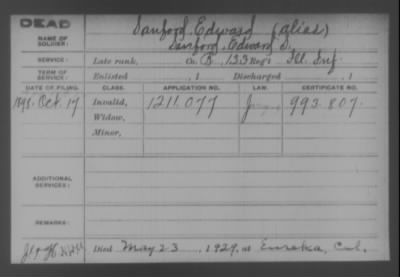 DEAD
NAME OF SOLDIER: Sanford, Edward (alias)
Sanford, Edward S.
SERVICE: Late rank, Co. B, 133 Reg't Ill. Inf.
TERM OF SERVICE: Enlisted , 1 Discharged , 1
DATE OF FILING. CLASS. APPLICATION NO. LAW. CERTIFICATE NO.
1898. Oct. 17 Invalid, 1211.077 993.807.
Widow,
Minor,
ADDITIONAL SERVICES:
REMARKS:
Died May 23, 1929, at Eureka, Cal.